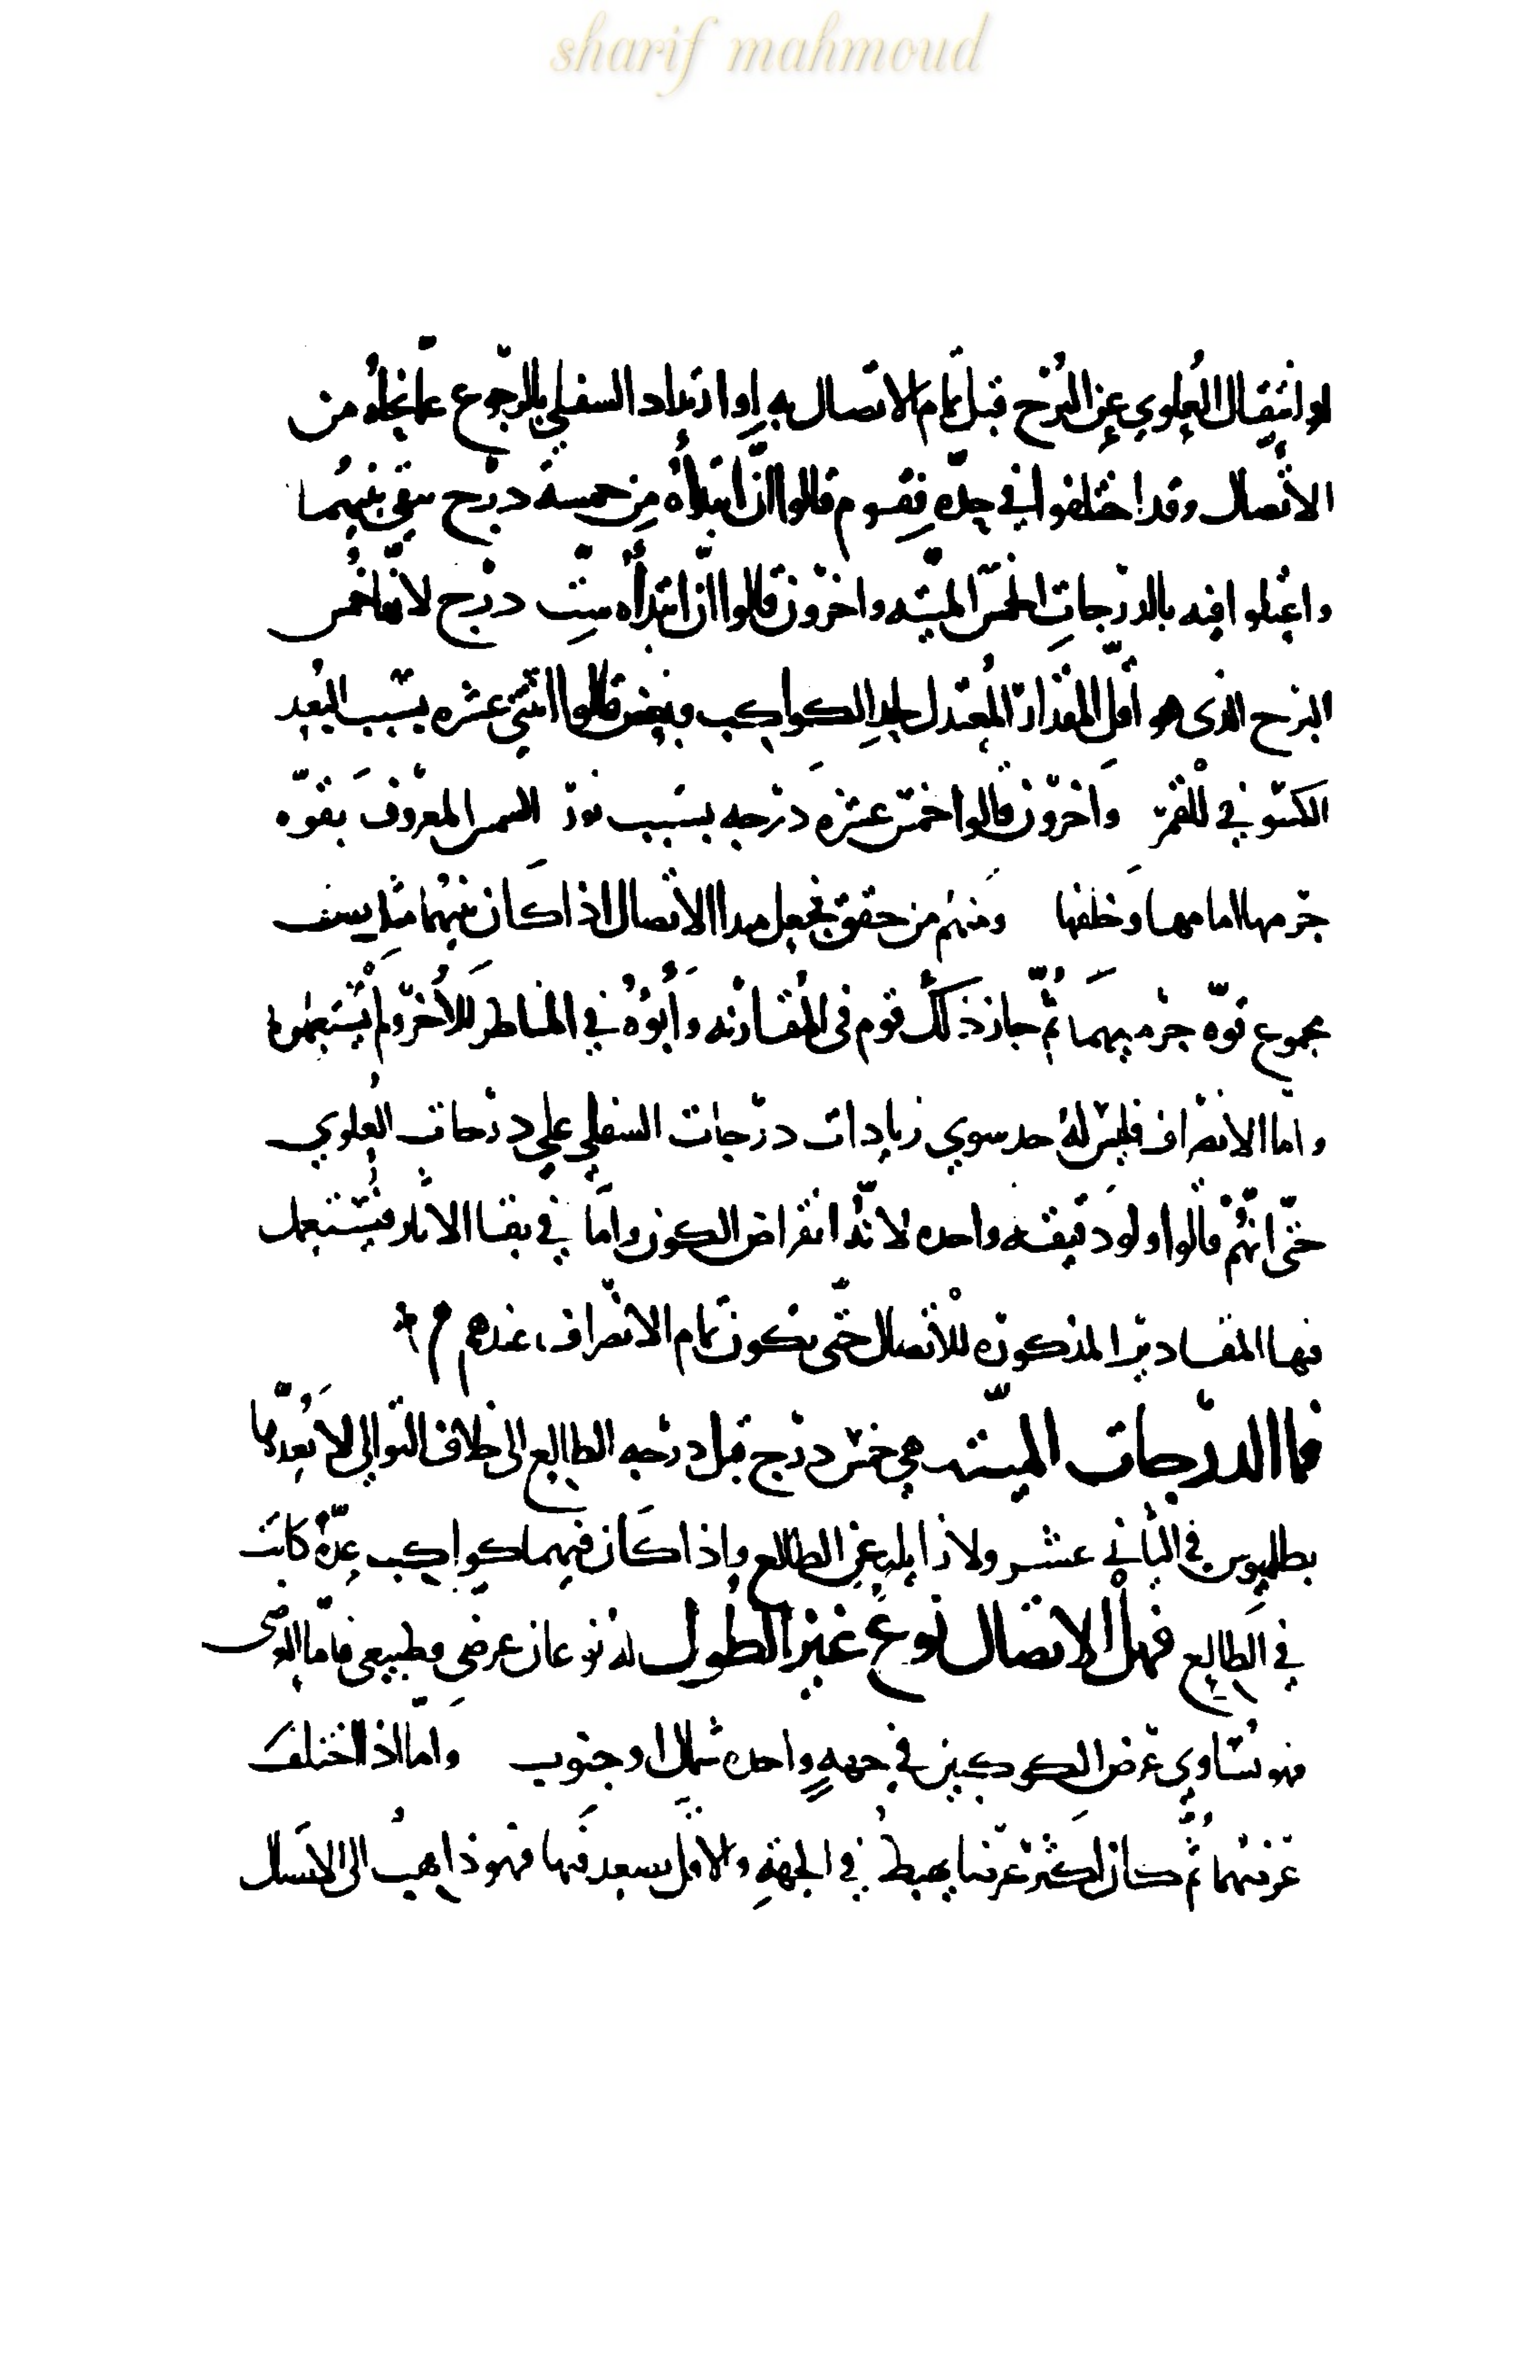 sharif mahmoud
او انتقال العلوي عن البرج قبل تمام الاتصال به او ارتداد السفلي بالرجوع عما نحاه من
الاتصال وقد اختلفوا في حده فقوم قالوا انّ ابتدأه من خمسة درج تبقي بينهما
واعتلوا فيه بالدرجات الخمس الميته واخرون قالوا انّ ابتدأه ستّ درج لانها خمس
البرج الذى هو اقل المقدار المعتدل الكواكب وبعض قالوا اثنتى عشره بسبب البُعد
في القمر واخرون قالوا خمس عشره درجه بسبب نور الشمس المعروف بقوّه
جرمها امامها وخلفها ومنهم من حقق فجعل مبدا الاتصال اذا كان بينهما مثل نصف
مجموع قوّه جرميهما ثمّ جاز ذلك قوم فى المقارنه وأبَوْهُ في المناظر الأخر ولم يستعملوه
واما الانصراف فليس لهُ حد سوي زيادات درجات السفلي علي درجات العُلوي
حتّى انهُمْ قالوا ولو دقيقه واحده لانّه انقراض الكون وامّا في بقا الاثار فيستعمل
فيها المقادير المذكوره للاتصال حتّى يكون تمام الانصراف عندهم م
فما الدرجات الميّته هي خمس درج قبل درجه الطالع الى خلاف التوالي لا يعدّها
بطلميوس في الثاني عشر ولا زايله عن الطالع واذا كان فيهما كواكب عدّهُ كانت
في الطالع فهل الاتصال نوعٌ غير الطُول له نوعان عرضى وطبيعى فامّا العرضى
فهو تساوي عرض الكوكبين في جهةٍ واحده شمال او جنوب وامّا اذا اختلفَ
عرضهُما ثُمّ كان اكثر عرضا يهبط في الجهةِ والاقل يصعد فيها فهو ذاهبٌ الى الاتصال